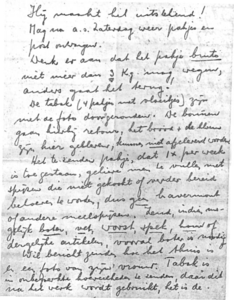 Hij maakt het uitstekend!
Mag na a.s. Zaterdag weer pakje en
post ontvangen.
Denk er aan dat het pakje bruto
niet meer dan 3 Kg. mag wegen,
anders gaat het terug.
De tabak (4 pakjes met vloeitjes) zijn
met de foto doorgezonden. De bonnen
gaan hierbij retour, het boord + de
zijn hier gebleven,
Het te zenden pakje, dat 1x per week
is toegestaan, gelieve men te vullen met
spijzen die niet gekookt of verder bereid
behoeven te worden, dus geen havermout
of andere meelspijzen. Zend indien mo-
gelijk boter, vet, worst, spek, of
dergelijke artikelen, vooral boter is nodig
Wie bericht gezonden had het thuis is
er een foto van zijn vrouw. Tabak is
in te zenden, daar dit
na het werk wordt gebruikt, het is de